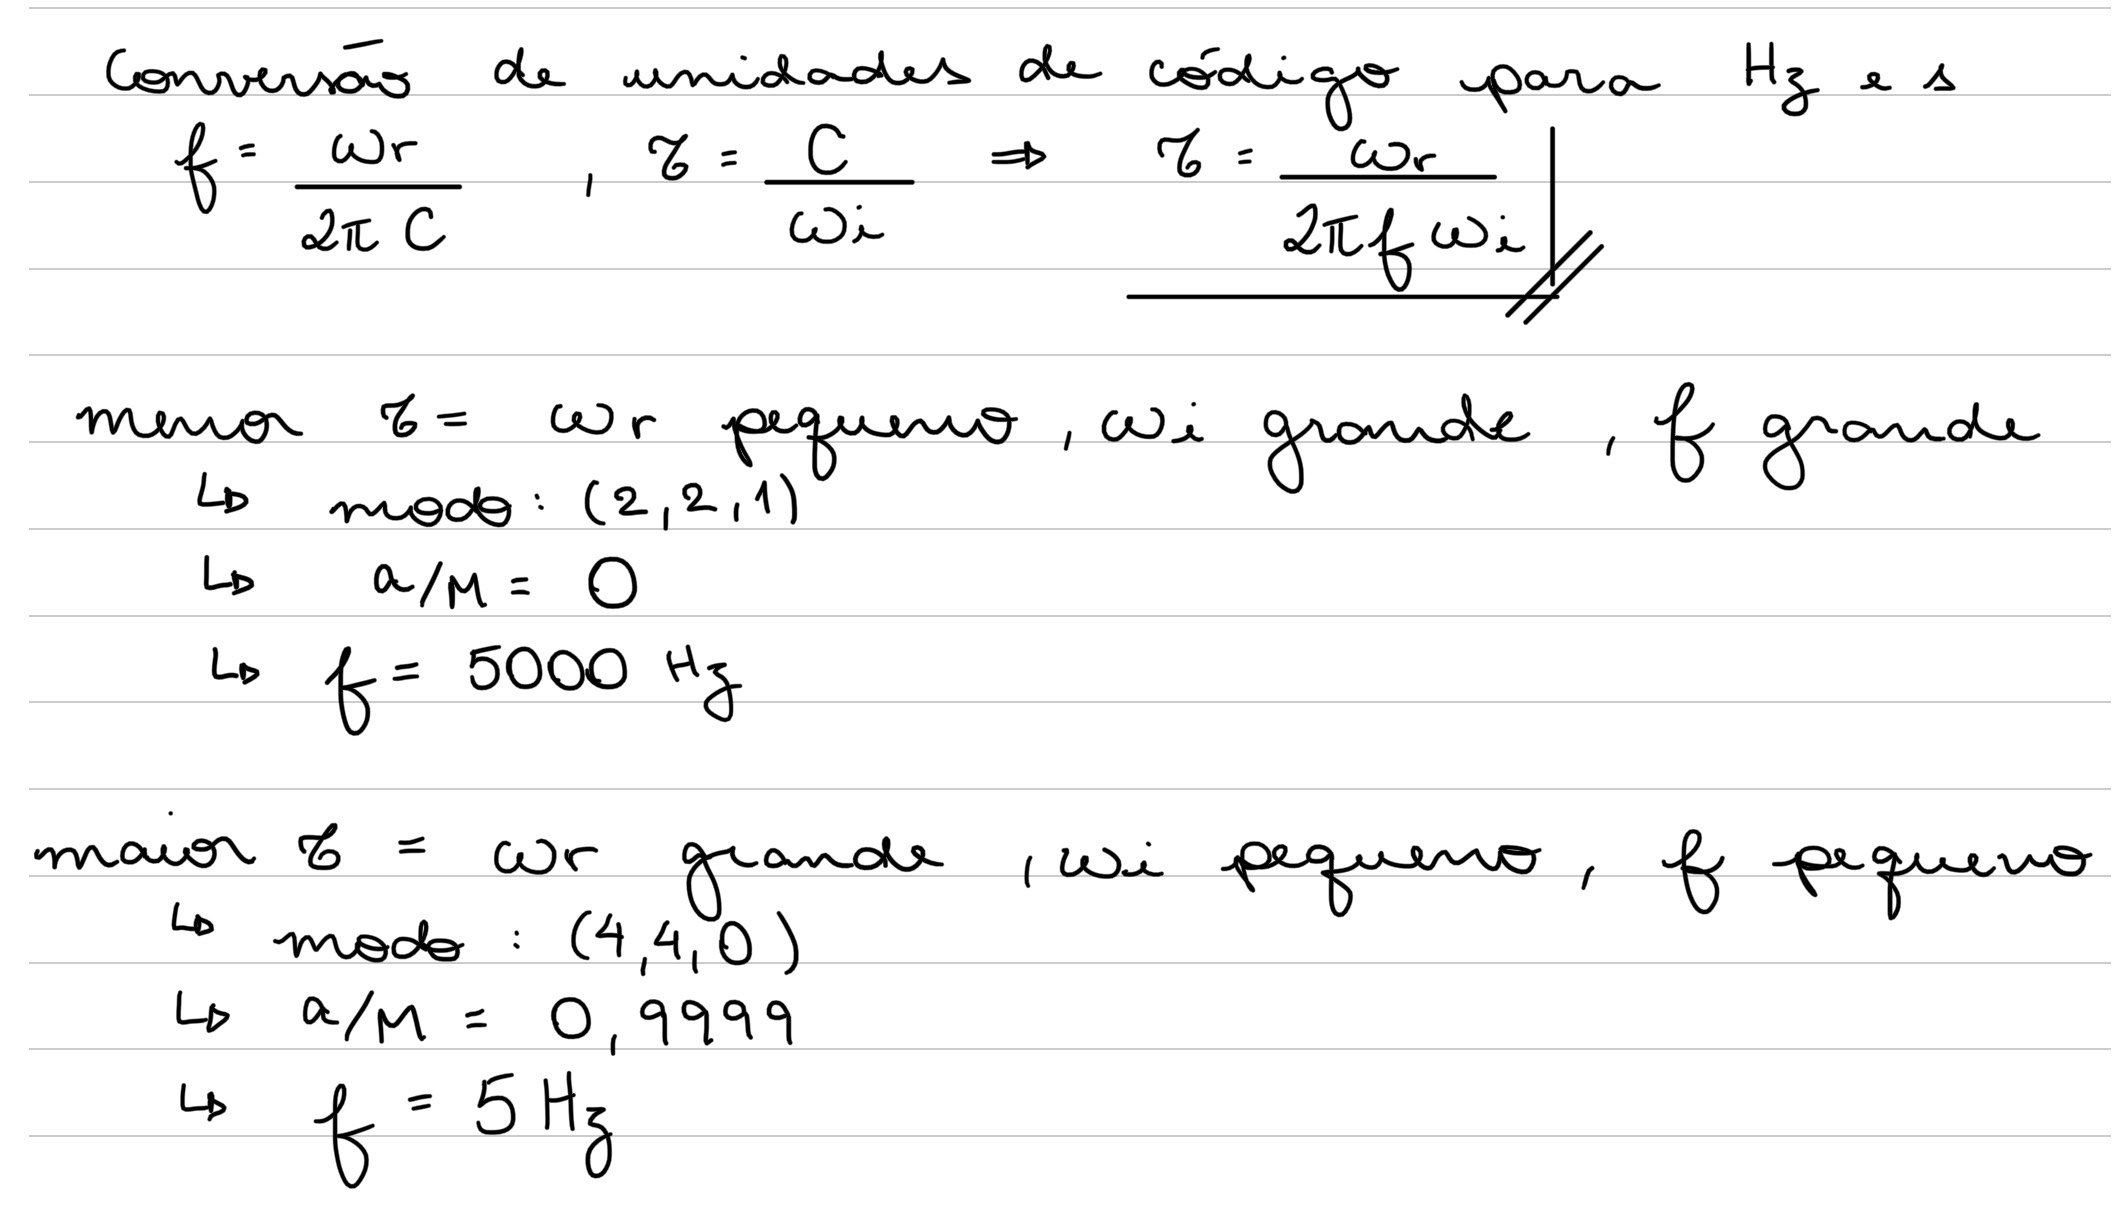 Conversão de unidades de código para Hz e s
f = ωr / 2π C , τ = C / ωi ⇒ τ = ωr / 2π f ωi
menor τ = ωr pequeno , ωi grande , f grande
↳ modo : (2,2,1)
↳ a/M = 0
↳ f = 5000 Hz
maior τ = ωr grande , ωi pequeno , f pequeno
↳ modo : (4,4,0)
↳ a/M = 0,9999
↳ f = 5 Hz